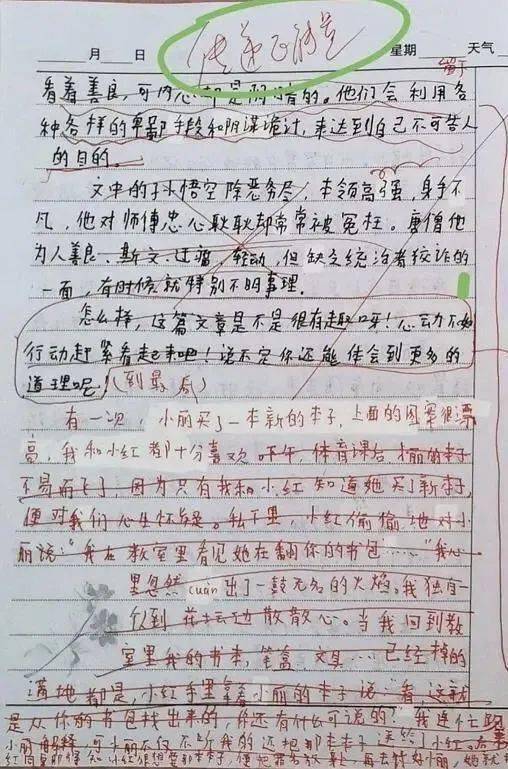 传递正能量
月 日 星期 天气
留于
看着善良,可内心却是阴暗的。他们会利用各
种各样的卑鄙手段和阴谋诡计,来达到自己不可告人
的目的。
文中的孙悟空除恶务尽,本领高强,身手不
凡,他对师傅忠心耿耿却常常被冤枉。唐僧他
为人善良、斯文、迂腐、但缺乏统治者狡诈的
一面,有时候就特别不明事理.
怎么样,这篇文章是不是很有趣呀!心动不如
行动赶紧看起来吧!说不定你还能体会到更多的
道理呢(到最后)
有一次,小丽买了一本新的本子,上面的图案很漂
亮,我和小红都十分喜欢 下午,体育课后,小丽的本子
不易而飞了,因为只有我和小红知道她买了新本子,
便对我们心生怀疑。私下里,小红偷偷地对小
丽说:“我在教室里看见她在翻你的书包……”我心
里忽然cuàn出了一鼓无名的火焰。我独自一
人到花坛边散散心。当我回到教
室里我的书本,笔盒,文具……已经掉的
满地都是,小红手里拿着小丽的本子说:看,这就
是从你的书包找出来的,你还有什么可说的?我连忙跟
小丽解释,可小丽不仅不听我的还把那本本子送给了小红。